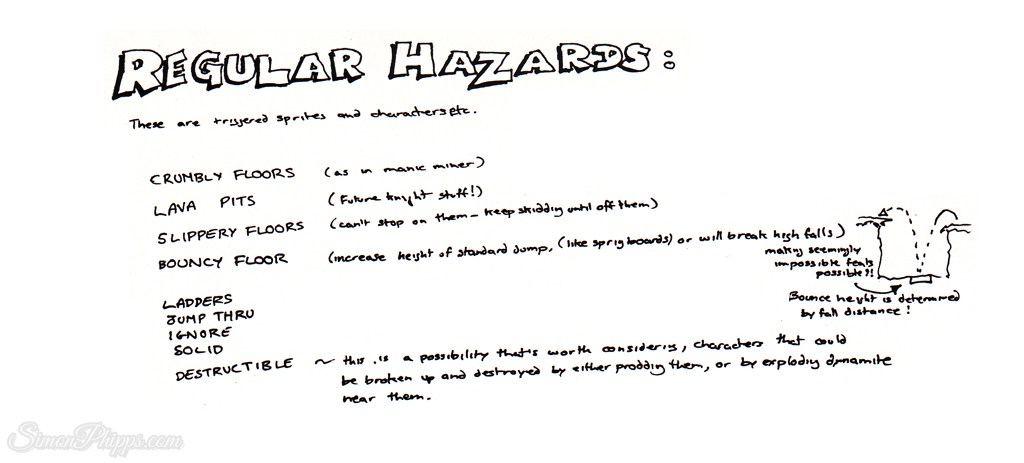 REGULAR HAZARDS:
These are triggered sprites and characters etc.
CRUMBLY FLOORS (as in manic miner)
LAVA PITS (Future knight stuff!)
SLIPPERY FLOORS (can't stop on them - keep skiddig until off them)
BOUNCY FLOOR (increase height of standard jump, (like sprig boards) or will break high falls)
making seemingly
impossible feats
possible?!
Bounce height is determined
by fall distance!
LADDERS
JUMP THRU
IGNORE
SOLID
DESTRUCTIBLE ~ this is a possibility that's worth considerig, characters that could
be broken up and destroyed by either proddig them, or by explodig dynamite
near them.
SimonPhipps.com